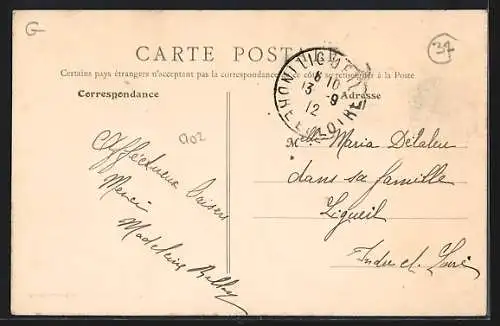 G
37
CARTE POSTALE
Certains pays étrangers n'acceptent pas la correspondance de ce côté se renseigner à la Poste
Correspondance
Adresse
LIGUEIL
8 10
13 - 9
12
INDRE ET LOIRE
902
Affectueux baisers
Merci
Madeleine
Melle Maria Delaleu
dans sa famille
Ligueil
Indre et Loire